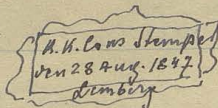 K. K. Cons Stempel
den 28 Aug. 1847
Lemberg